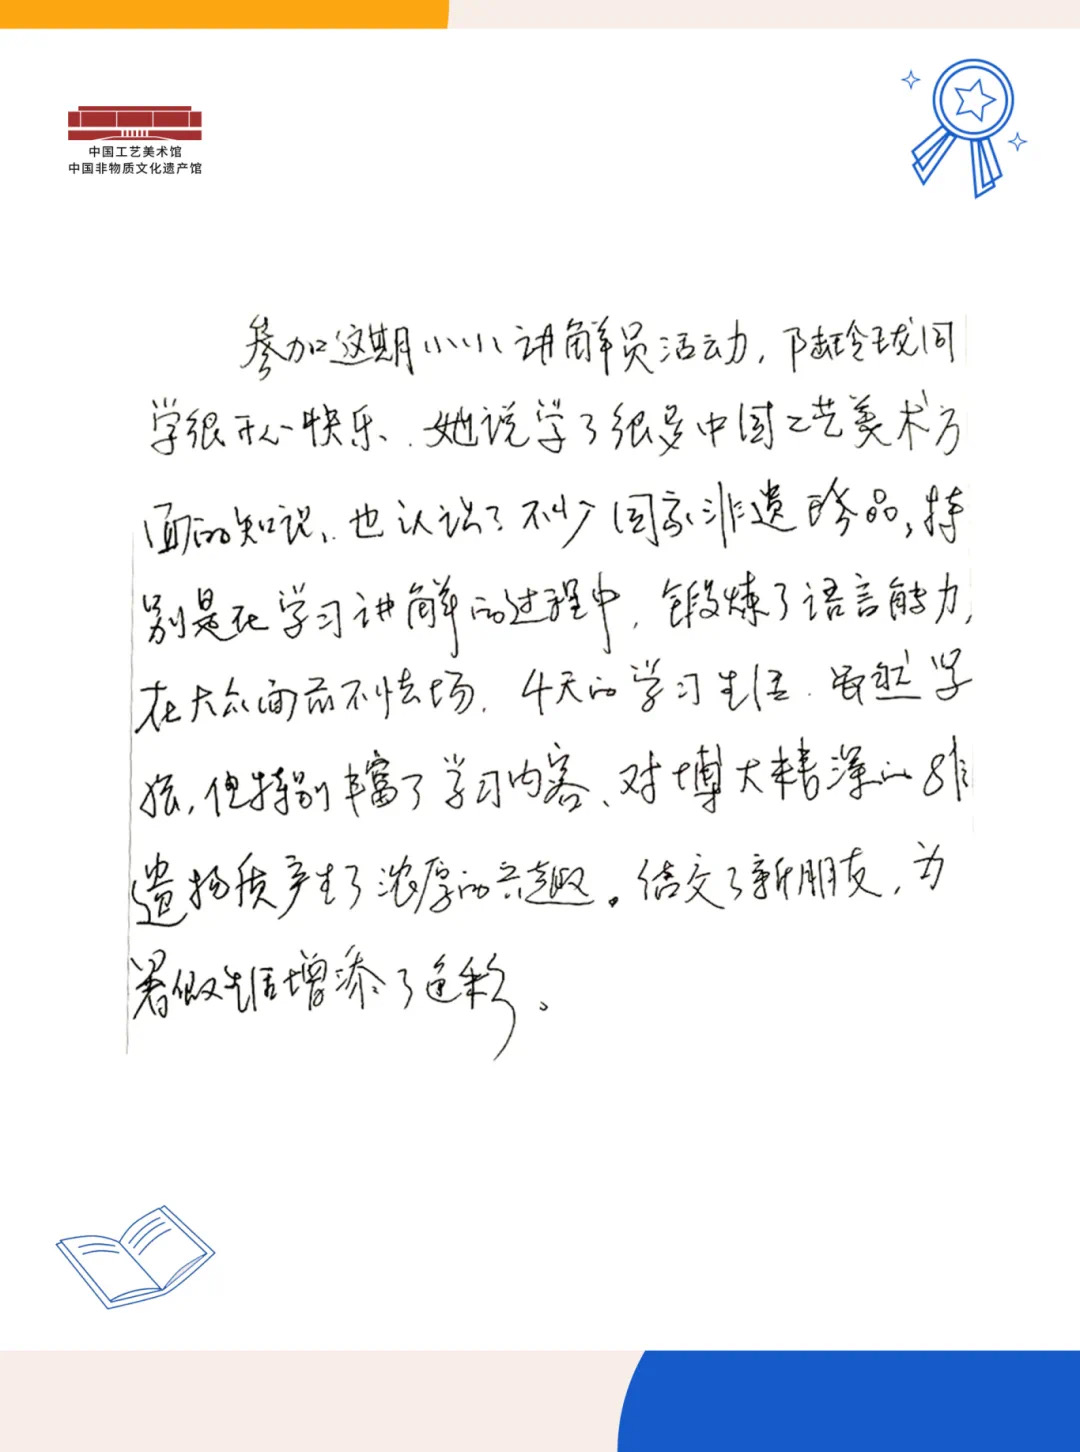 中国工艺美术馆
中国非物质文化遗产馆
参加这期小小讲解员活动，陆玲珑同
学很开心快乐、她说学了很多中国工艺美术方
面的知识、也认识了不少国家非遗珍品，特
别是在学习讲解的过程中，锻炼了语言能力，
在大众面前不怯场. 4天的学习生活. 虽然学
短，但特别丰富了学习内容、对博大精深的非
遗物质产生了浓厚的兴趣。结交了新朋友，为
暑假生活增添了色彩。